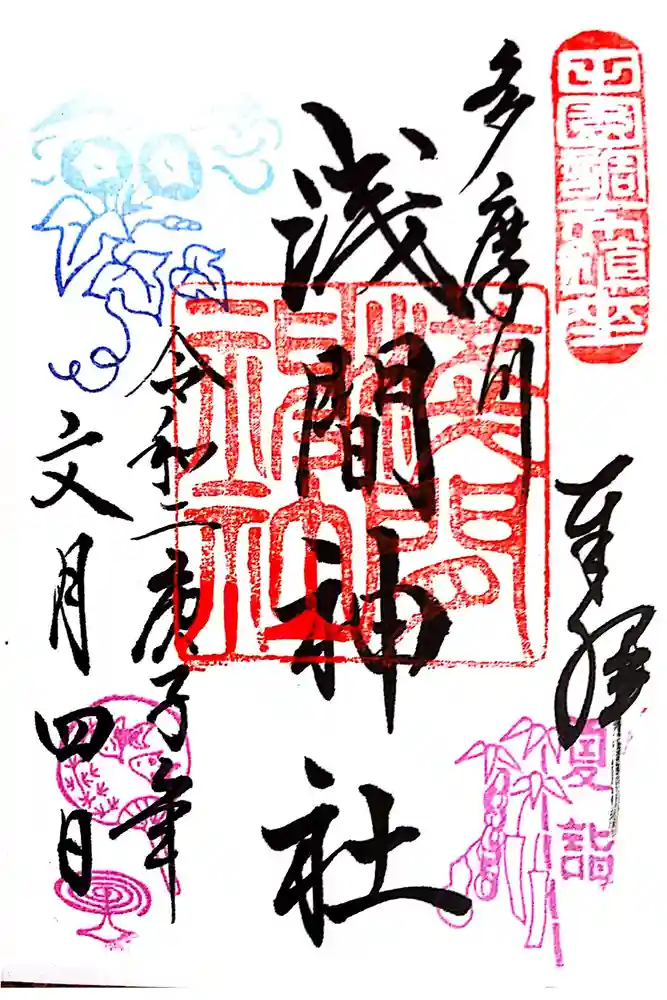 田園調布鎮座
奉拝
夏詣
多摩川
浅間神社
令和二庚子年
文月四日